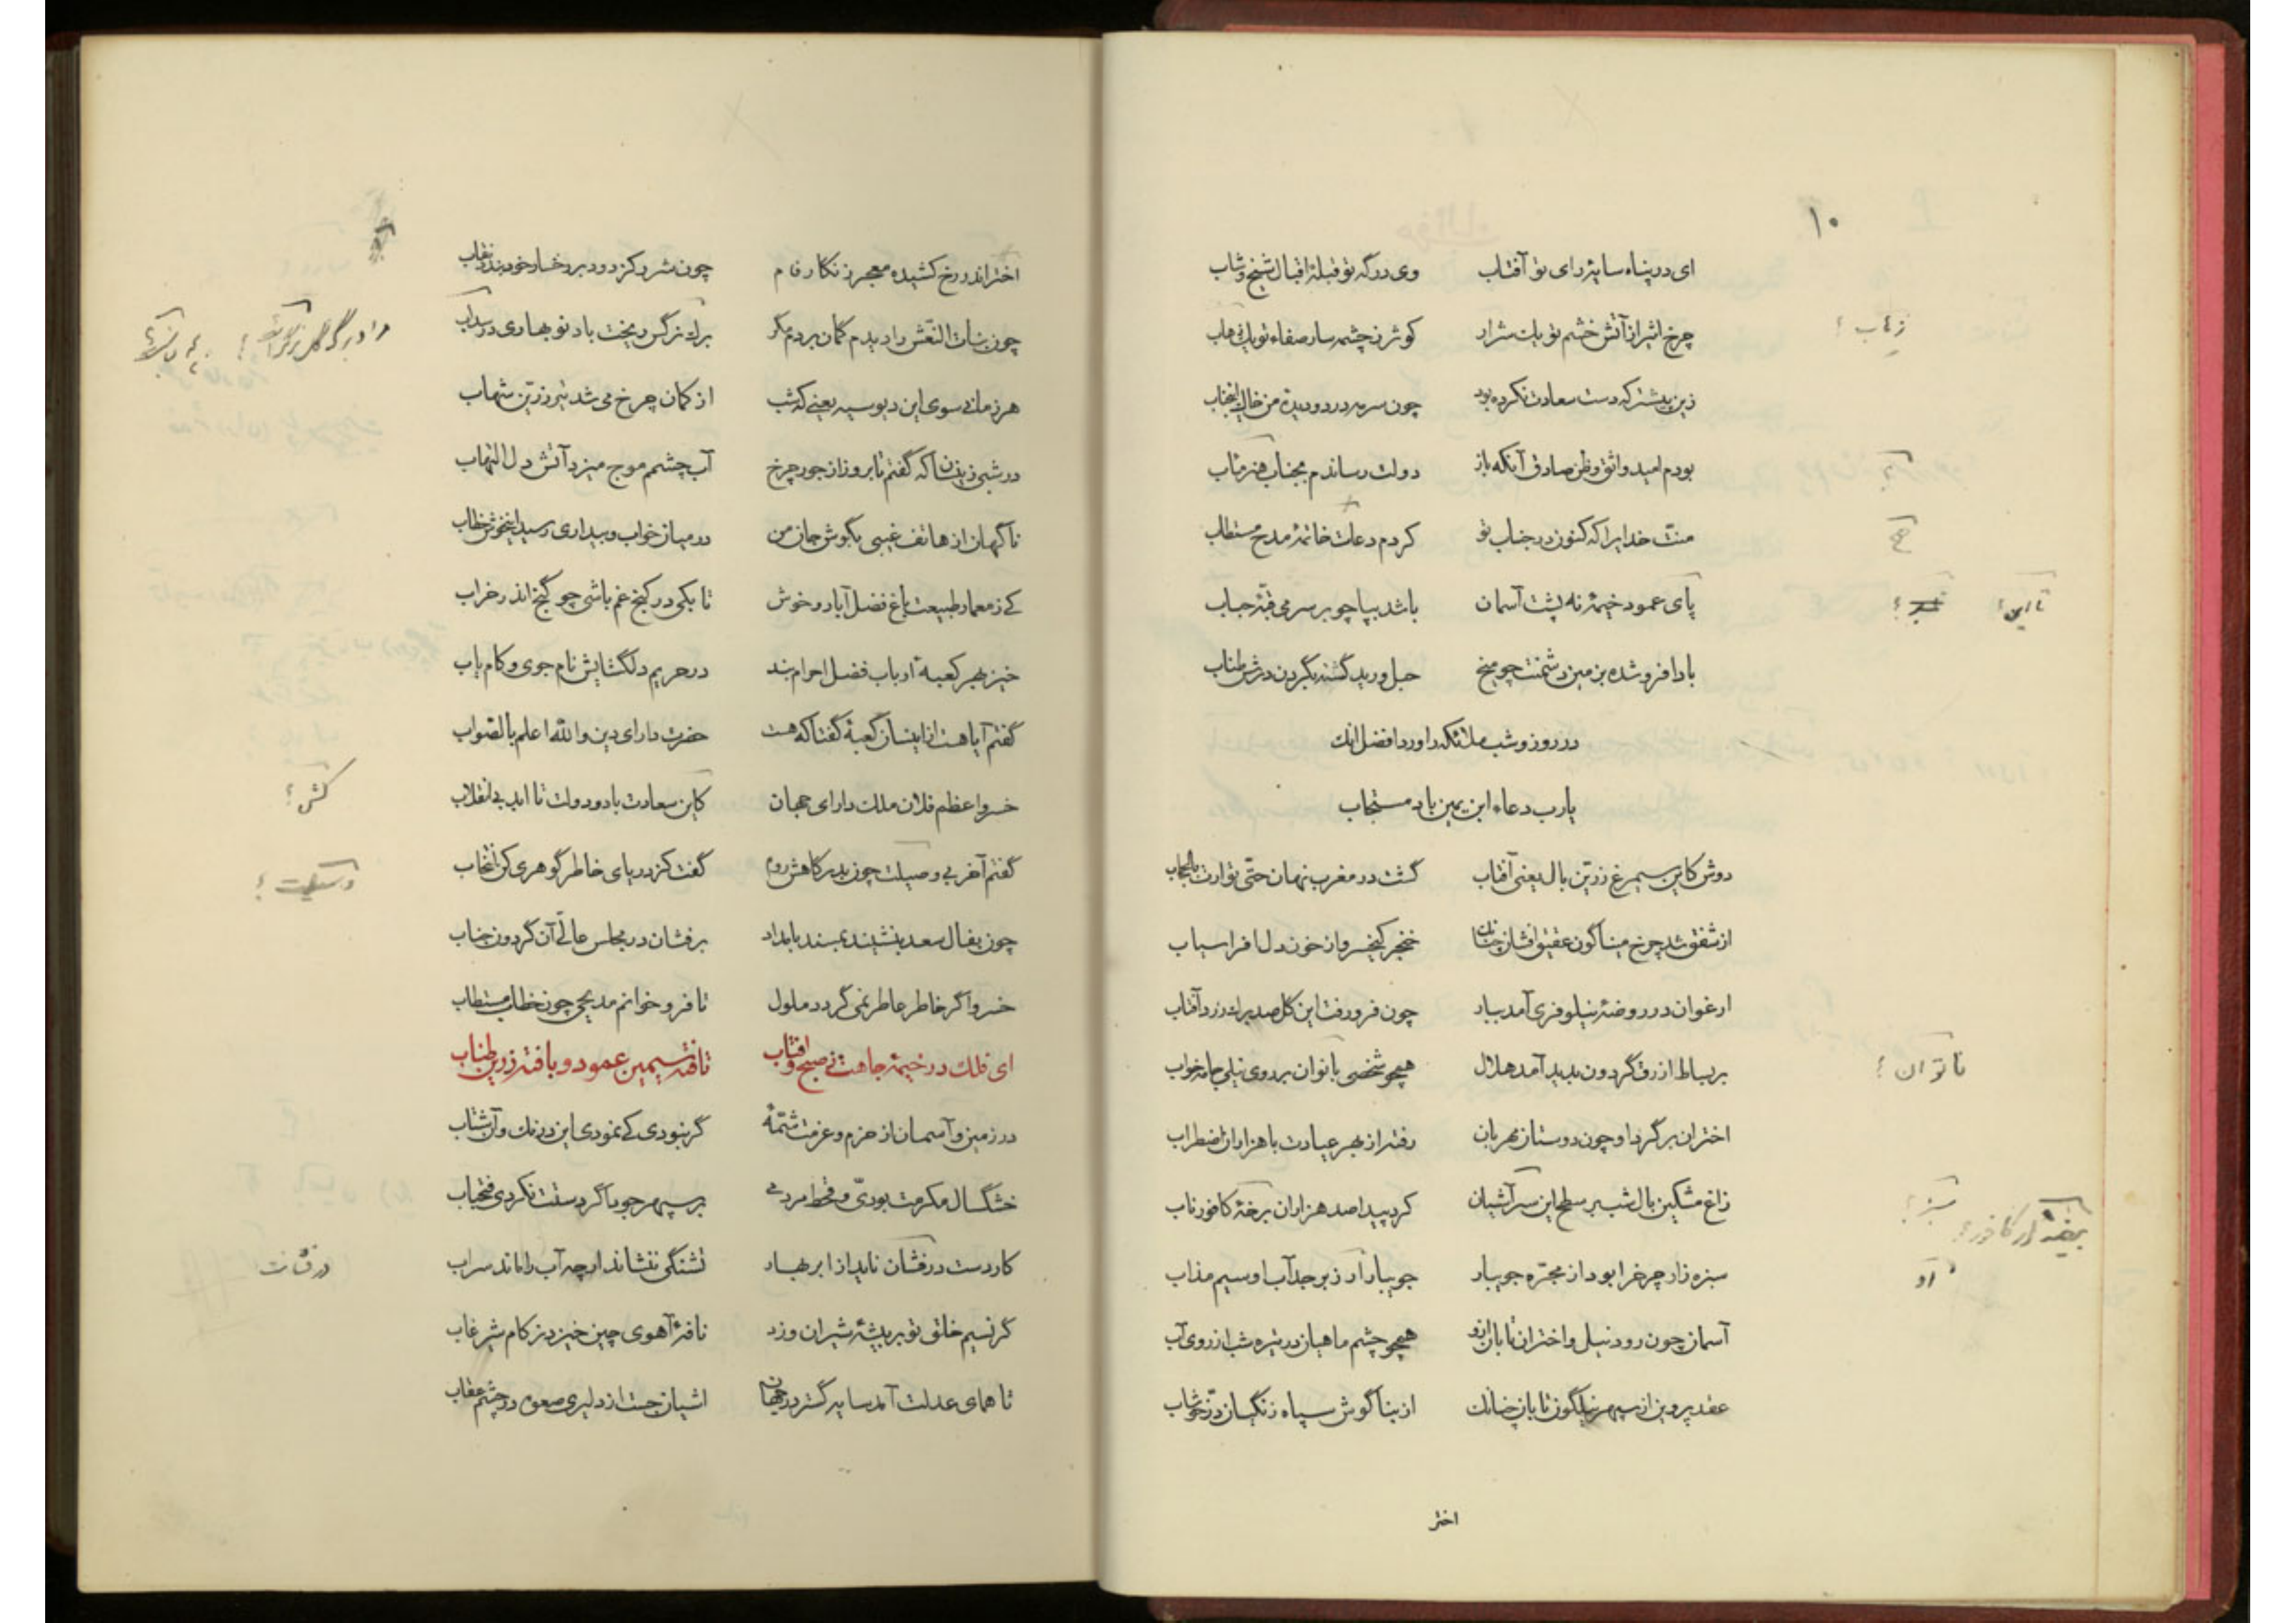 ۱۰
ای در پناه سایهٔ رای تو آفتاب وی درگه تو قبلهٔ اقبال شیخ و شاب
چرخ اثیر از آتش خشم تو یک شرار کوثر ز چشمه سار صفاء تو یک
زهاب ؛
زین پیشتر که دست سعادت نکرده بود چون سرمه در دو دیدهٔ من خاک
بودم امید واثق و ظن صادق آنکه باز دولت رساندم بجناب هنر مآب
منت خدایرا که کنون در جناب تو کردم دعات خاتمهٔ مدح مستطاب
پای عمود خیمهٔ نه پشت آسمان باشد بپا چو بر سر می قبهٔ حباب
تا این ؛
بادا فرو شده بزمین دشمنت چو میخ حبل ورید گشته بگردن درش طناب
در روز و شب ملائکه را ورد افضل آنک
یارب دعاء ابن یمین باد مستجاب
دوش کاین سیمرغ زرین بال یعنی آفتاب گشت در مغرب نهان حتی توارت بالحجاب
از شفق شد چرخ میناگون عقیق افشان چنانک خنجر کیخسرو از خون دل افراسیاب
ارغوان در روضهٔ نیلوفری آمد ببار چون فرو رفت این گل صد برگ زرد آفتاب
بر بساط ازرق گردون پدید آمد هلال همچو شخصی باتوان بر روی نیلی جامه خواب
ناتوان ؛
اختران بر گرد او چون دوستان مهربان رفته از بهر عیادت با هزاران اضطراب
زاغ مشکین بال شب بر سطح این سر آشیان کرد پیدا صد هزاران برخهٔ کافور ناب
سبز ؛ بیضهٔ از کافور ؛
سبزه زار چرخ را بود از مجره جویبار جویبار آر زبرجد آب او سیم مذاب
آسمان چون رود نیل و اختران تابان ازو همچو چشم ماهیان در تیره شب از روی آب
عقد پروین از سپهر نیلگون تابان چنانک از بناگوش سیاه زنگیان در خوشاب
اختر
اختر اندر رخ کشیده معجر زنگار فام چون شرر کز دود بر رخسار خود بندد نقاب
چون بنات النعش را دیدم گمان بردم مگر برگ نرگس ریخت باد نوبهاری در سداب
هر زمانی سوی این دیو سیه یعنی که شب از کمان چرخ می شد تیر زرین شهاب
در شبی زینسان که گفتم تا بروز از جور چرخ آب چشمم موج میزد آتش دل التهاب
ناگهان از هاتف غیبی بگوش جان من در میان خواب و بیداری رسید این خوش خطاب
کی ز معمار طبیعت باغ فضل آباد و خوش تا بکی در کنج غم باشی چو گنج اندر خراب
خیز بهر کعبهٔ ارباب فضل احرام بند در حریم دلگشایش نام جوی و کام یاب
گفتم آیا هست ازاینسان کعبهٔ گفتا که هست حضرت دارای دین والله اعلم بالصواب
خسرو اعظم فلان ملک دارای جهان کاین سعادت باد و دولت تا ابد بی انقلاب
کش ؛
گفتم آخر بی وصیلت چون بدرگاهش روم گفت کز دریای خاطر گوهری کن انتخاب
وسیلت ؛
چون بفال سعد بنشیند بمسند بامداد برفشان در مجلس عالی آن گردون جناب
خسروا گر خاطر عاطر نمی گردد ملول تا فرو خوانم مدیحی چون خطاب مستطاب
ای فلک در خیمهٔ جاهت ز صبح و آفتاب تافته سیمین عمود و بافته زرین طناب
در زمین و آسمان از حزم و عزمت شمهٔ گر نبودی کی نمودی این درنگ و آن شتاب
خشکسال مکرمت بودی و قحط مردمی بر سپهر جود ما گر دستت نکردی فتحیاب
کار دست درفشان ناید از ابر بهار تشنگی ننشاند ارچه آب را ماند سراب
درفشانت
گر نسیم خلق تو بر بیشهٔ شیران وزد نافهٔ آهوی چین خیزد ز کام شیر غاب
تا همای عدلت آمد سایه گستر در جهان آشیان جست از دلیری صعوه در چشم عقاب